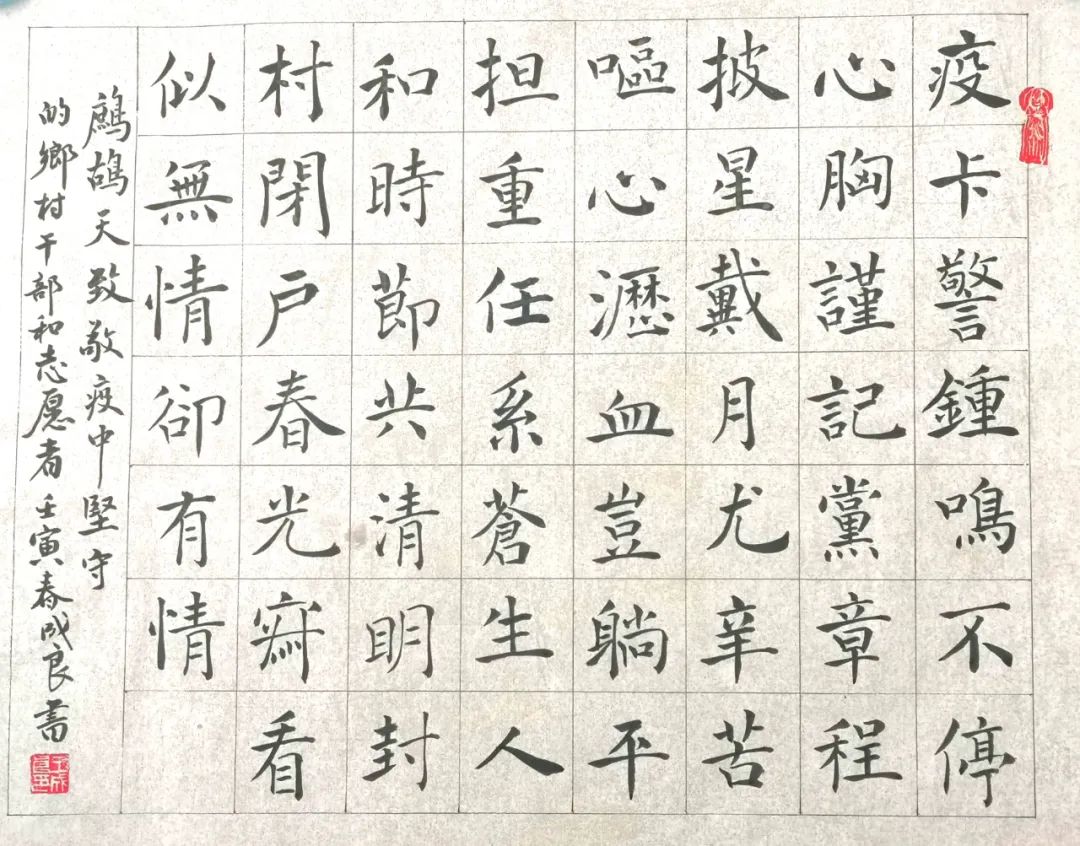 疫卡警鍾鳴不停
心胸謹記黨章程
披星戴月尤辛苦
嘔心瀝血豈躺平
担重任系蒼生人
和時節共清明封
村閉戶春光寂看
似無情卻有情
鷓鴣天致敬疫中堅守
的鄉村干部和志愿者壬寅春成良書
王成良印